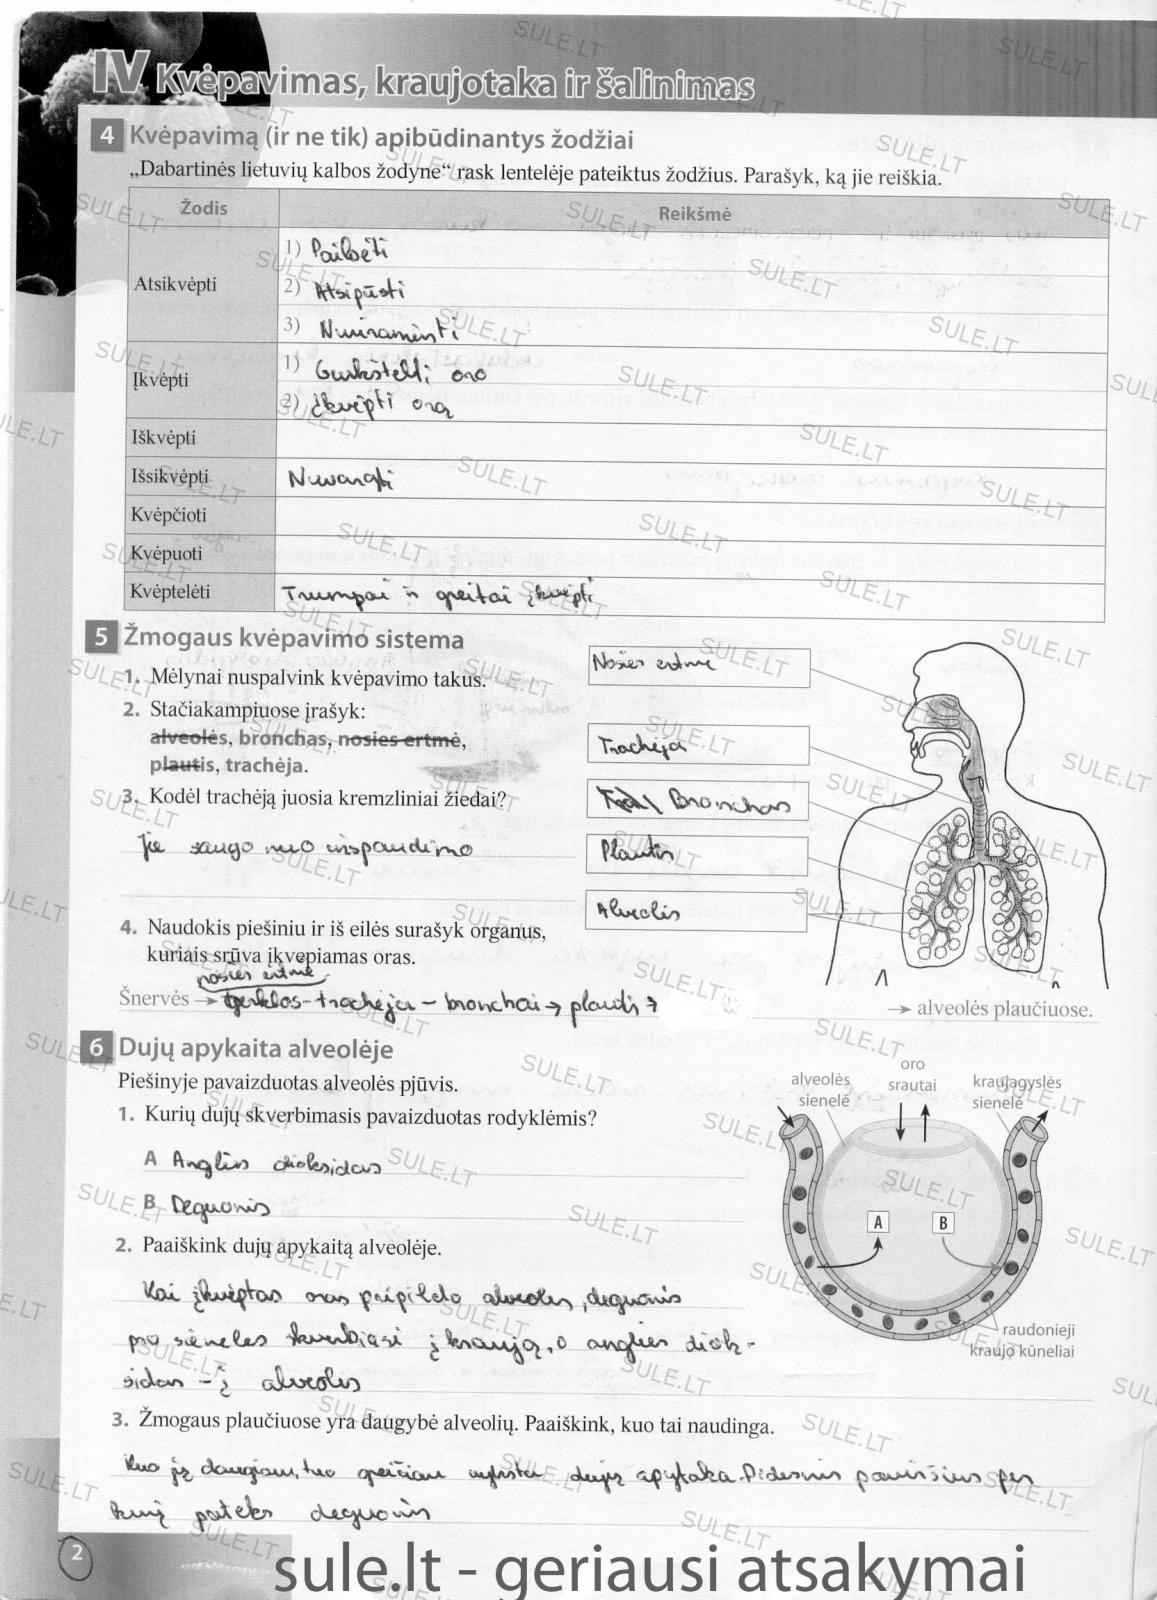 IV Kvėpavimas, kraujotaka ir šalinimas
4 Kvėpavimą (ir ne tik) apibūdinantys žodžiai
„Dabartinės lietuvių kalbos žodyne“ rask lentelėje pateiktus žodžius. Parašyk, ką jie reiškia.
Žodis Reikšmė
Atsikvėpti
1) Pailsėti
2) Atsipūsti
3) Nusiraminti
Įkvėpti
1) Gurkštelti oro
2) įkvėpti orą
Iškvėpti
Išsikvėpti Nuvargti
Kvėpčioti
Kvėpuoti
Kvėptelėti Trumpai ir greitai įkvėpti
5 Žmogaus kvėpavimo sistema
1. Mėlynai nuspalvink kvėpavimo takus.
2. Stačiakampiuose įrašyk:
alveolės, bronchas, nosies ertmė,
plautis, trachėja.
3. Kodėl trachėją juosia kremzliniai žiedai?
Jie saugo nuo inspaudimo
4. Naudokis piešiniu ir iš eilės surašyk organus,
kuriais srūva įkvepiamas oras.
nosies ertmė
Šnervės → gerklos - trachėja - bronchai → plautis →
→ alveolės plaučiuose.
Nosies ertmė
Trachėja
Bronchas
Plautis
Alveolės
6 Dujų apykaita alveolėje
Piešinyje pavaizduotas alveolės pjūvis.
1. Kurių dujų skverbimasis pavaizduotas rodyklėmis?
A Anglies dioksidas
B Deguonis
2. Paaiškink dujų apykaitą alveolėje.
Kai įkvėptas oras pripildo alveoles, deguonis
pro sieneles skverbiasi į kraują, o anglies diok-
sidas - į alveoles
3. Žmogaus plaučiuose yra daugybė alveolių. Paaiškink, kuo tai naudinga.
Kuo jų daugiau, tuo greičiau vyksta dujų apykaita. Didesnis paviršius per
kurį pateks deguonis
alveolės
sienelė
oro
srautai
kraujagyslės
sienelė
A
B
raudonieji
kraujo kūneliai
2
sule.lt - geriausi atsakymai
SULE.LT